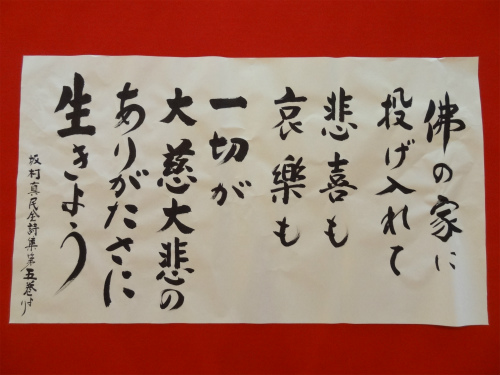 佛の家に
投げ入れて
悲喜も
哀樂も
一切が
大慈大悲の
ありがたさに
生きよう
坂村真民全詩集第五巻より